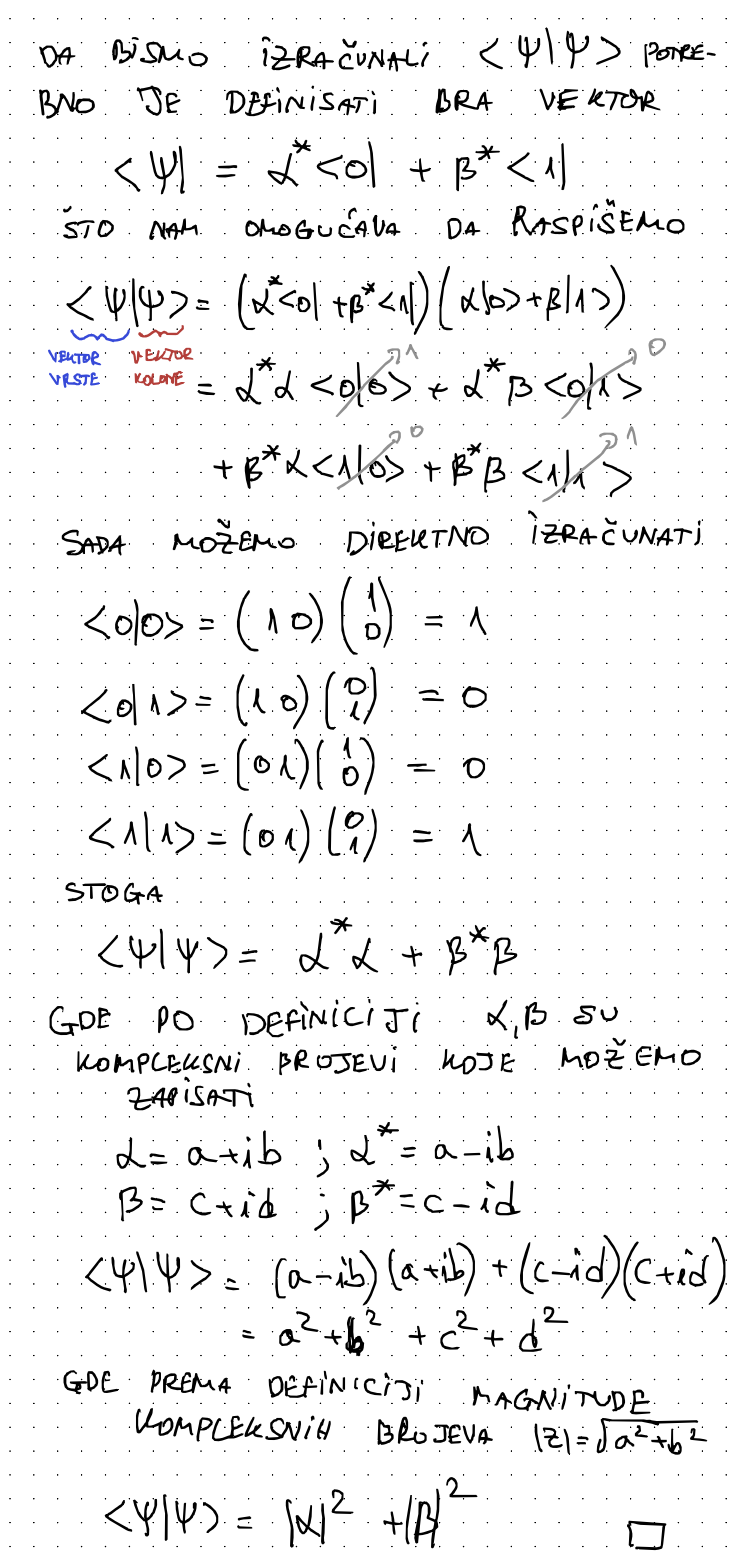 DA BISMO IZRAČUNALI <Ψ|Ψ> POTRE-
BNO JE DEFINISATI BRA VEKTOR
<Ψ| = α*<0| + β*<1|
ŠTO NAM OMOGUĆAVA DA RASPIŠEMO
<Ψ|Ψ> = (α*<0| + β*<1|)(α|0> + β|1>)
VEKTOR VRSTE VEKTOR KOLONE
= α*α <0|0> ↗1 + α*β <0|1> ↗0
+ β*α <1|0> ↗0 + β*β <1|1> ↗1
SADA MOŽEMO DIREKTNO IZRAČUNATI
<0|0> = (1 0)(1 0) = 1
<0|1> = (1 0)(0 1) = 0
<1|0> = (0 1)(1 0) = 0
<1|1> = (0 1)(0 1) = 1
STOGA
<Ψ|Ψ> = α*α + β*β
GDE PO DEFINICIJI α,β SU
KOMPLEKSNI BROJEVI KOJE MOŽEMO
ZAPISATI
α = a+ib ; α* = a-ib
β = c+id ; β* = c-id
<Ψ|Ψ> = (a-ib)(a+ib) + (c-id)(c+id)
= a² + b² + c² + d²
GDE PREMA DEFINICIJI MAGNITUDE
KOMPLEKSNIH BROJEVA |z| = √a²+b²
<Ψ|Ψ> = |α|² + |β|² □